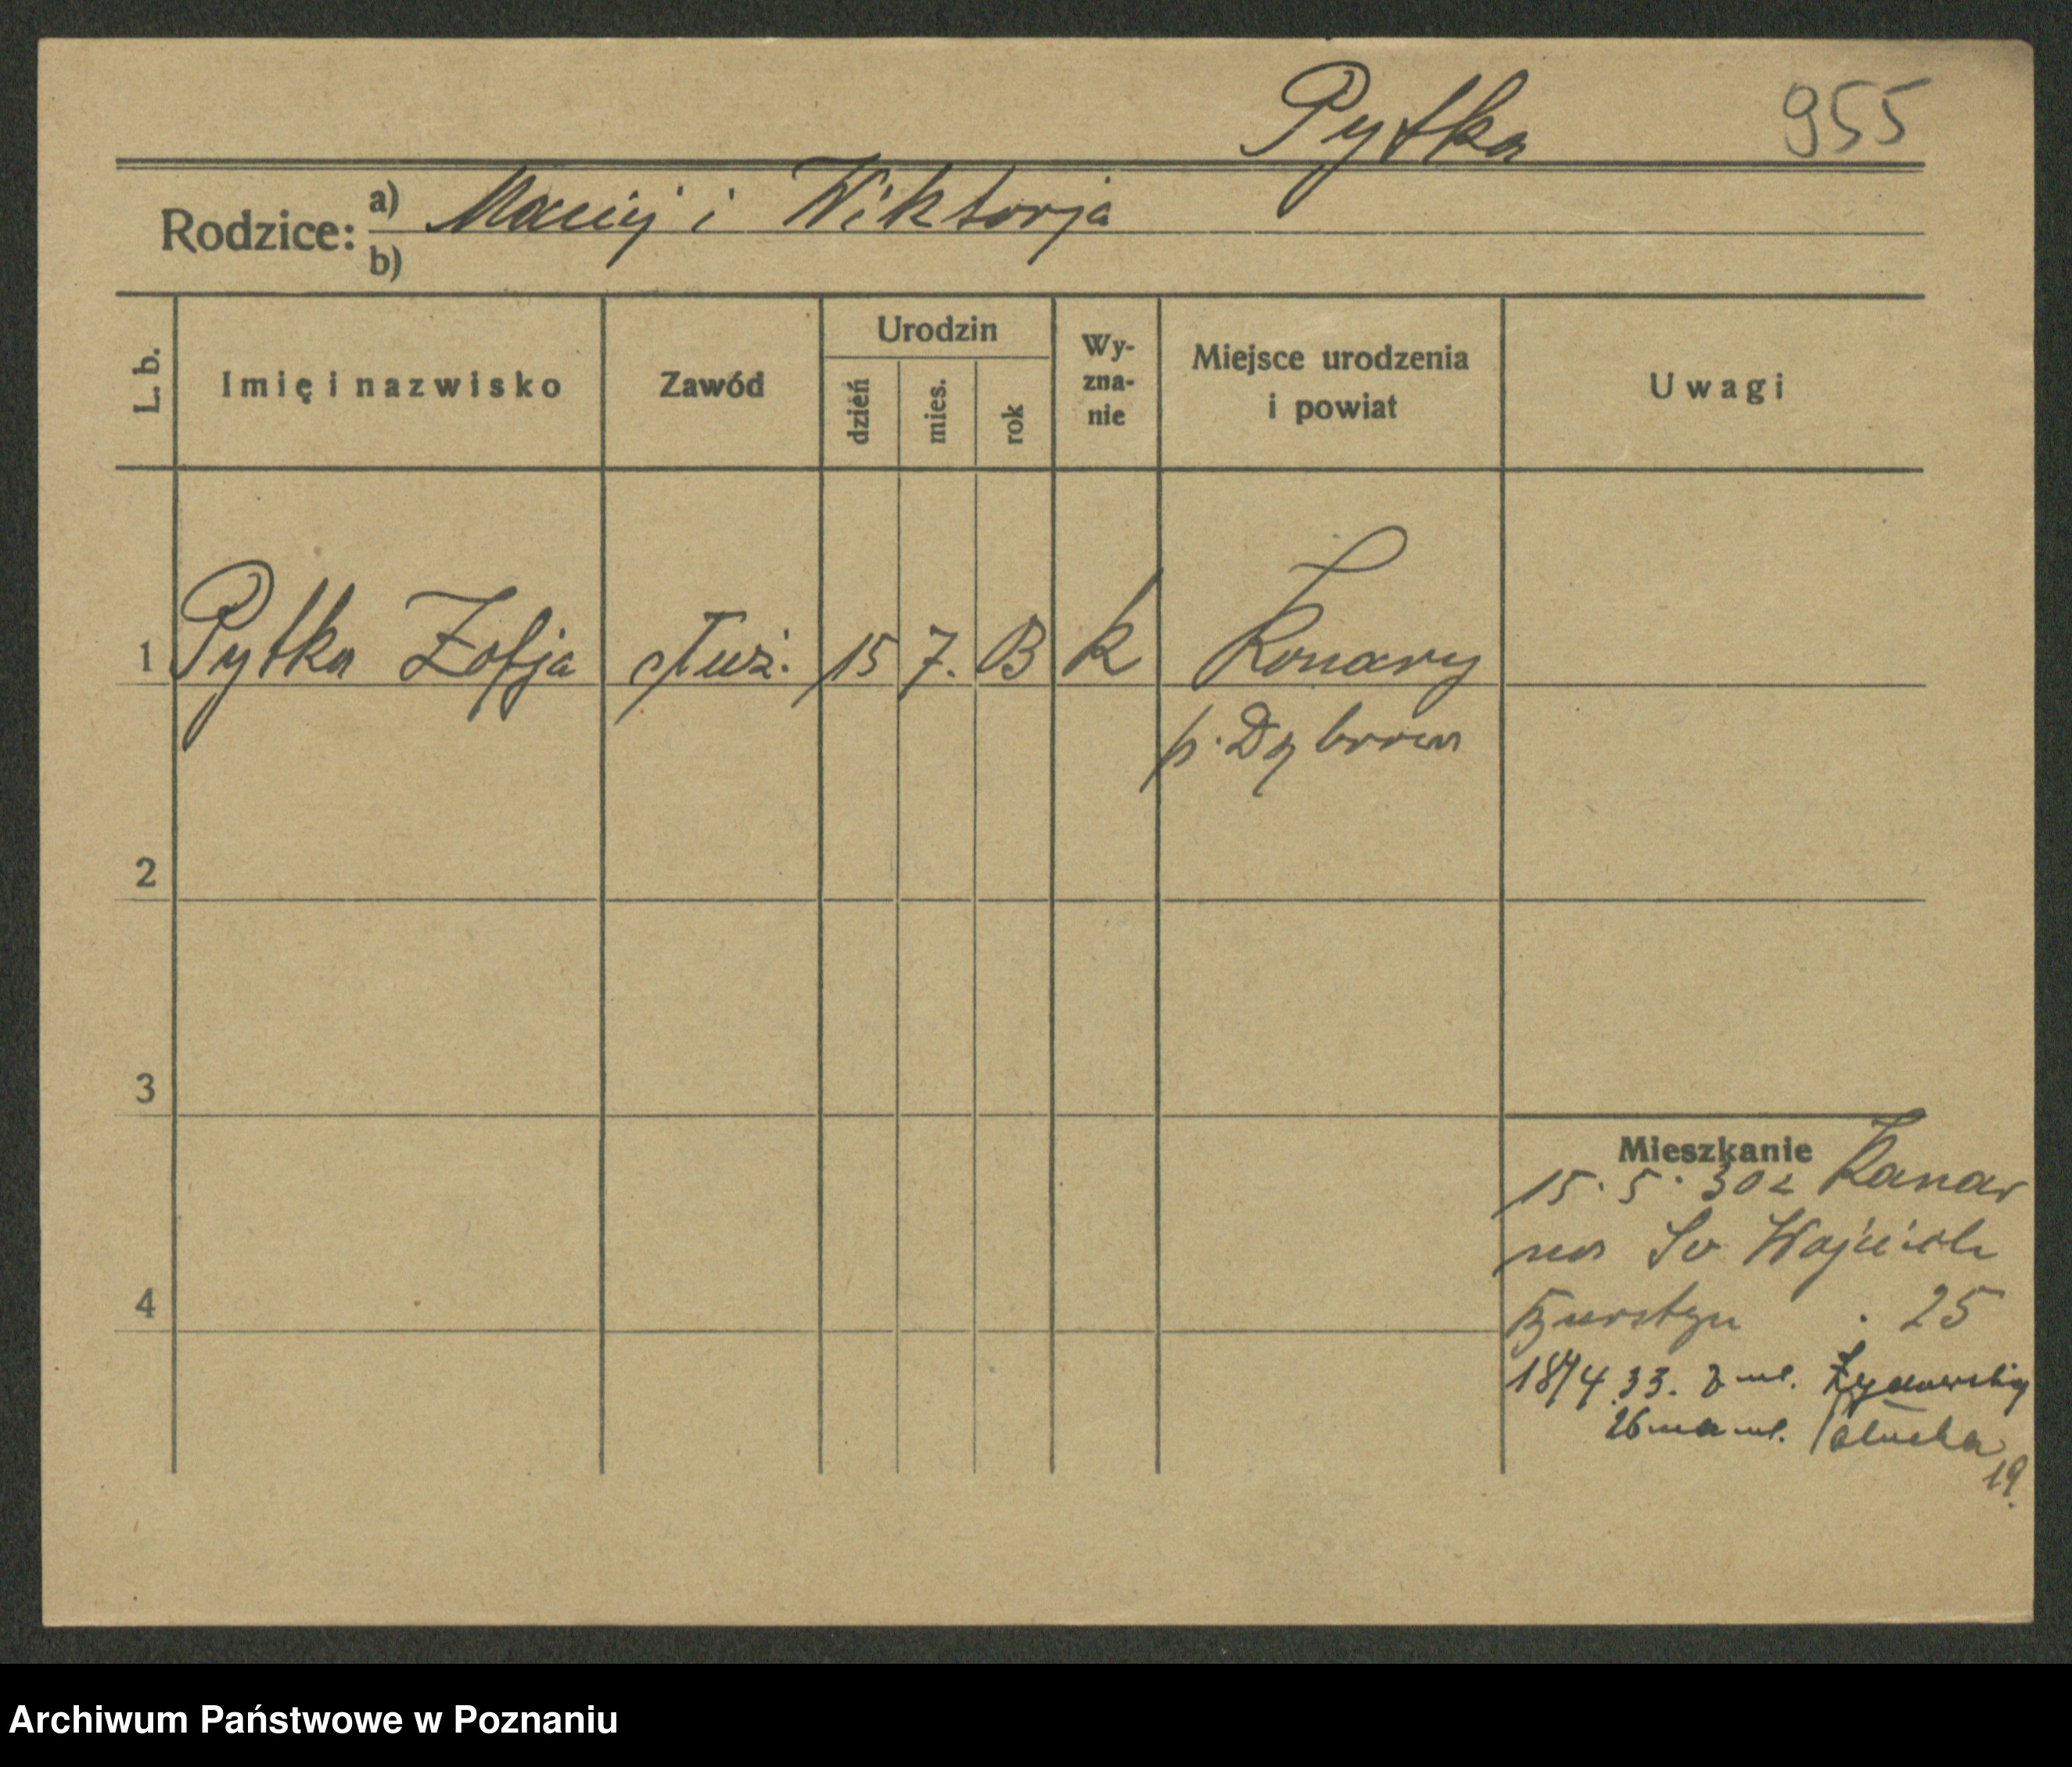 Pytka 955
Rodzice: a) Maciej i Wiktorja
b)
L. b. Imię i nazwisko Zawód Urodzin dzień mies. rok Wyznanie Miejsce urodzenia i powiat Uwagi
1 Pytka Zofja służ. 15 7. 13 k Konary
p. Dąbrowa
2
3
Mieszkanie
15. 5. 30 z Konar
na Św Wojciech
4
25
18/4 33. z ul. Żydowskiej
26 na ul.
19.
Archiwum Państwowe w Poznaniu